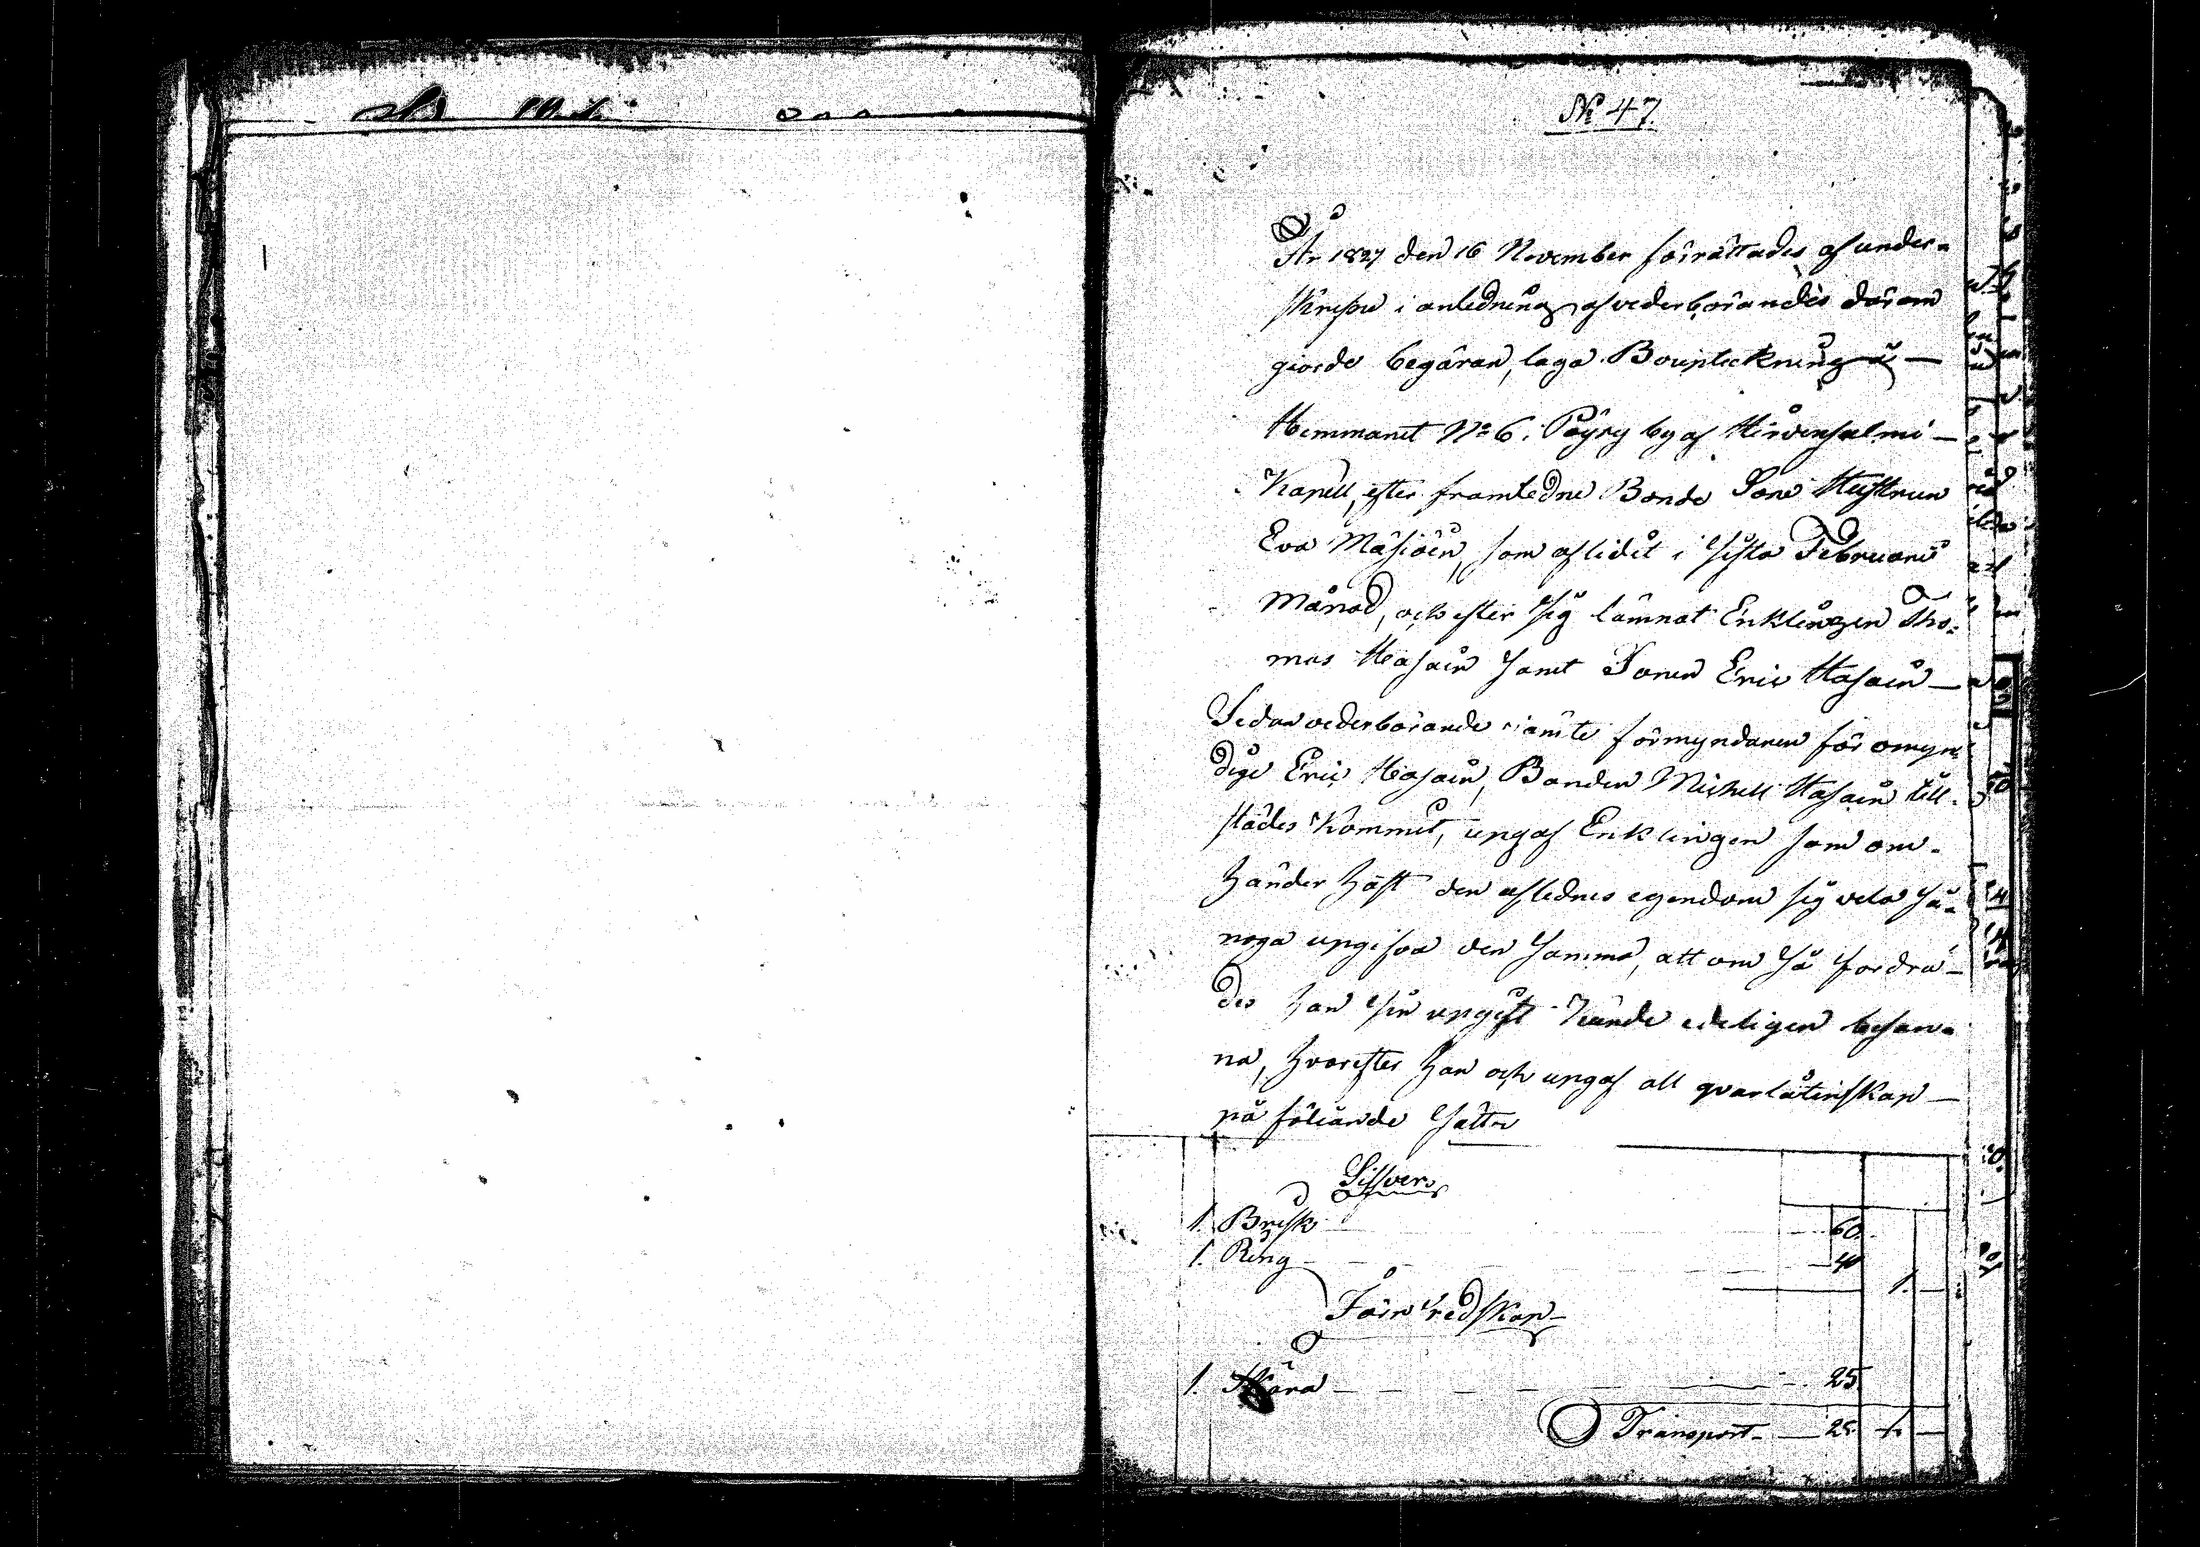 N 47.
År 1827 den 16 November förrättades af under-
skrifvne i anledning af vederbörandes därom
giorde begäran, laga Bouptekning å
Hemmanet No 6. Pöyry by af Hirvensalmi
Kapell, efter framledne Bonde Sone Hustrun
Eva Mäsiäin, som aflidit i sista Februarii
Månad, och efter sig lämnat Enklingen Tho-
mas Hasain samt Sonen Eric Hasain
Sedan vederbörande jämte förmyndaren för omyn
dige Eric Hasain, Bonden Michell Hasain till-
städes kommit, upgaf Enklingen som om-
händer haft den aflednes egendom sig vela så
noga upgifva den samma, att om så fordra-
des han sin upgift kunde edeligen besan-
na, hvarefter han och upgaf all qvarlåtenskap
på föliande sätt
Silfver
1. Brisk 60
1. Ring 40
1.
Järn redskap
1. Skära 25
Transport 25 1.